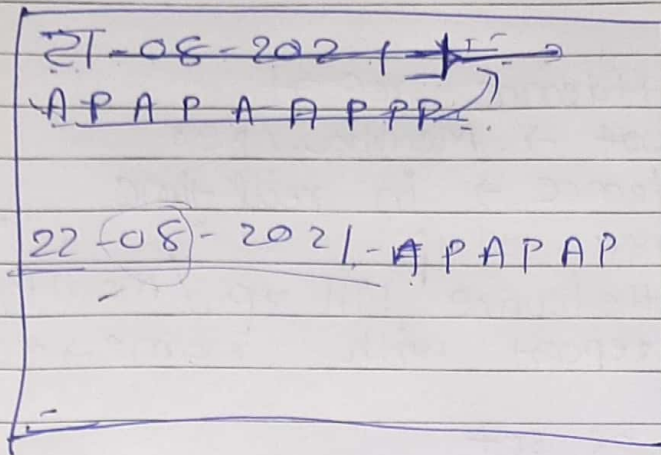 21-08-2021
A P A P A A P P P
22-08-2021-A P A P A P